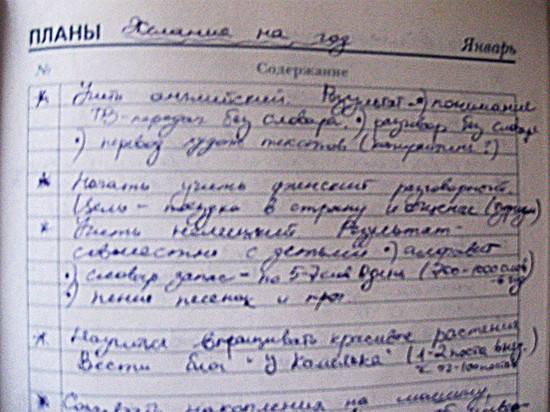 ПЛАНЫ Желание на год
Январь
№ Содержание
Учить английский. Результат •) понимание
ТВ-передач без словаря, •) разговор без словаря
•) перевод худож текстов (копирайтинг?)
Начать учить финский разговорный.
Цель - поездка в страну и общение
Учить немецкий Результат -
совместно с детьми •) алфавит
•) словар запас - по 5-7 слов в день (750-1000 слов
•) пение песенок и проч.
Научиться выращивать красивые растения
Вести блог "У камелька" (1-2 поста в нед.)
Создать накопления на машину